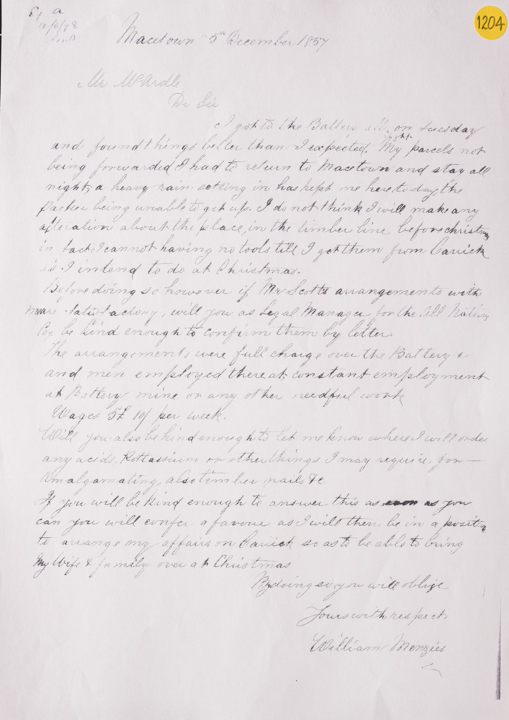 1204
a
Macetown 5th December 1857
Mr McArdle
Dr Sir
I got to the Battery all right on Tuesday
and found things better than I expected. My parcels not
being forwarded I had to return to Macetown and stay all
night, a heavy rain setting in has kept me here to day the
Packer being unable to get up. I do not think I will make any
alteration about the place, in the timber line before christmas
in fact I cannot having no tools till I get them from Carrick
as I intend to do at Christmas.
Before doing so however if Mr Scotts arrangements with
me are satisfactory, will you as Legal Manager for the All Nations
Co be kind enough to confirm them by letter
The arrangements were full charge over the Battery &
and men employed thereat, constant employment
at Battery mine or any other needful work
Wages 5£ 10/ per week.
Will you also be kind enough to let me know where I will order
any acid, Pottassium or other things I may require for
Amalgamating, also timber nails &c
If you will be kind enough to answer this as soon as you
can you will confer a favour as I will then be in a position
to arrange my affairs on Carrick so as to be able to bring
My Wife & family over at Christmas
By doing so you will oblige
Yours with respect
William Menzies